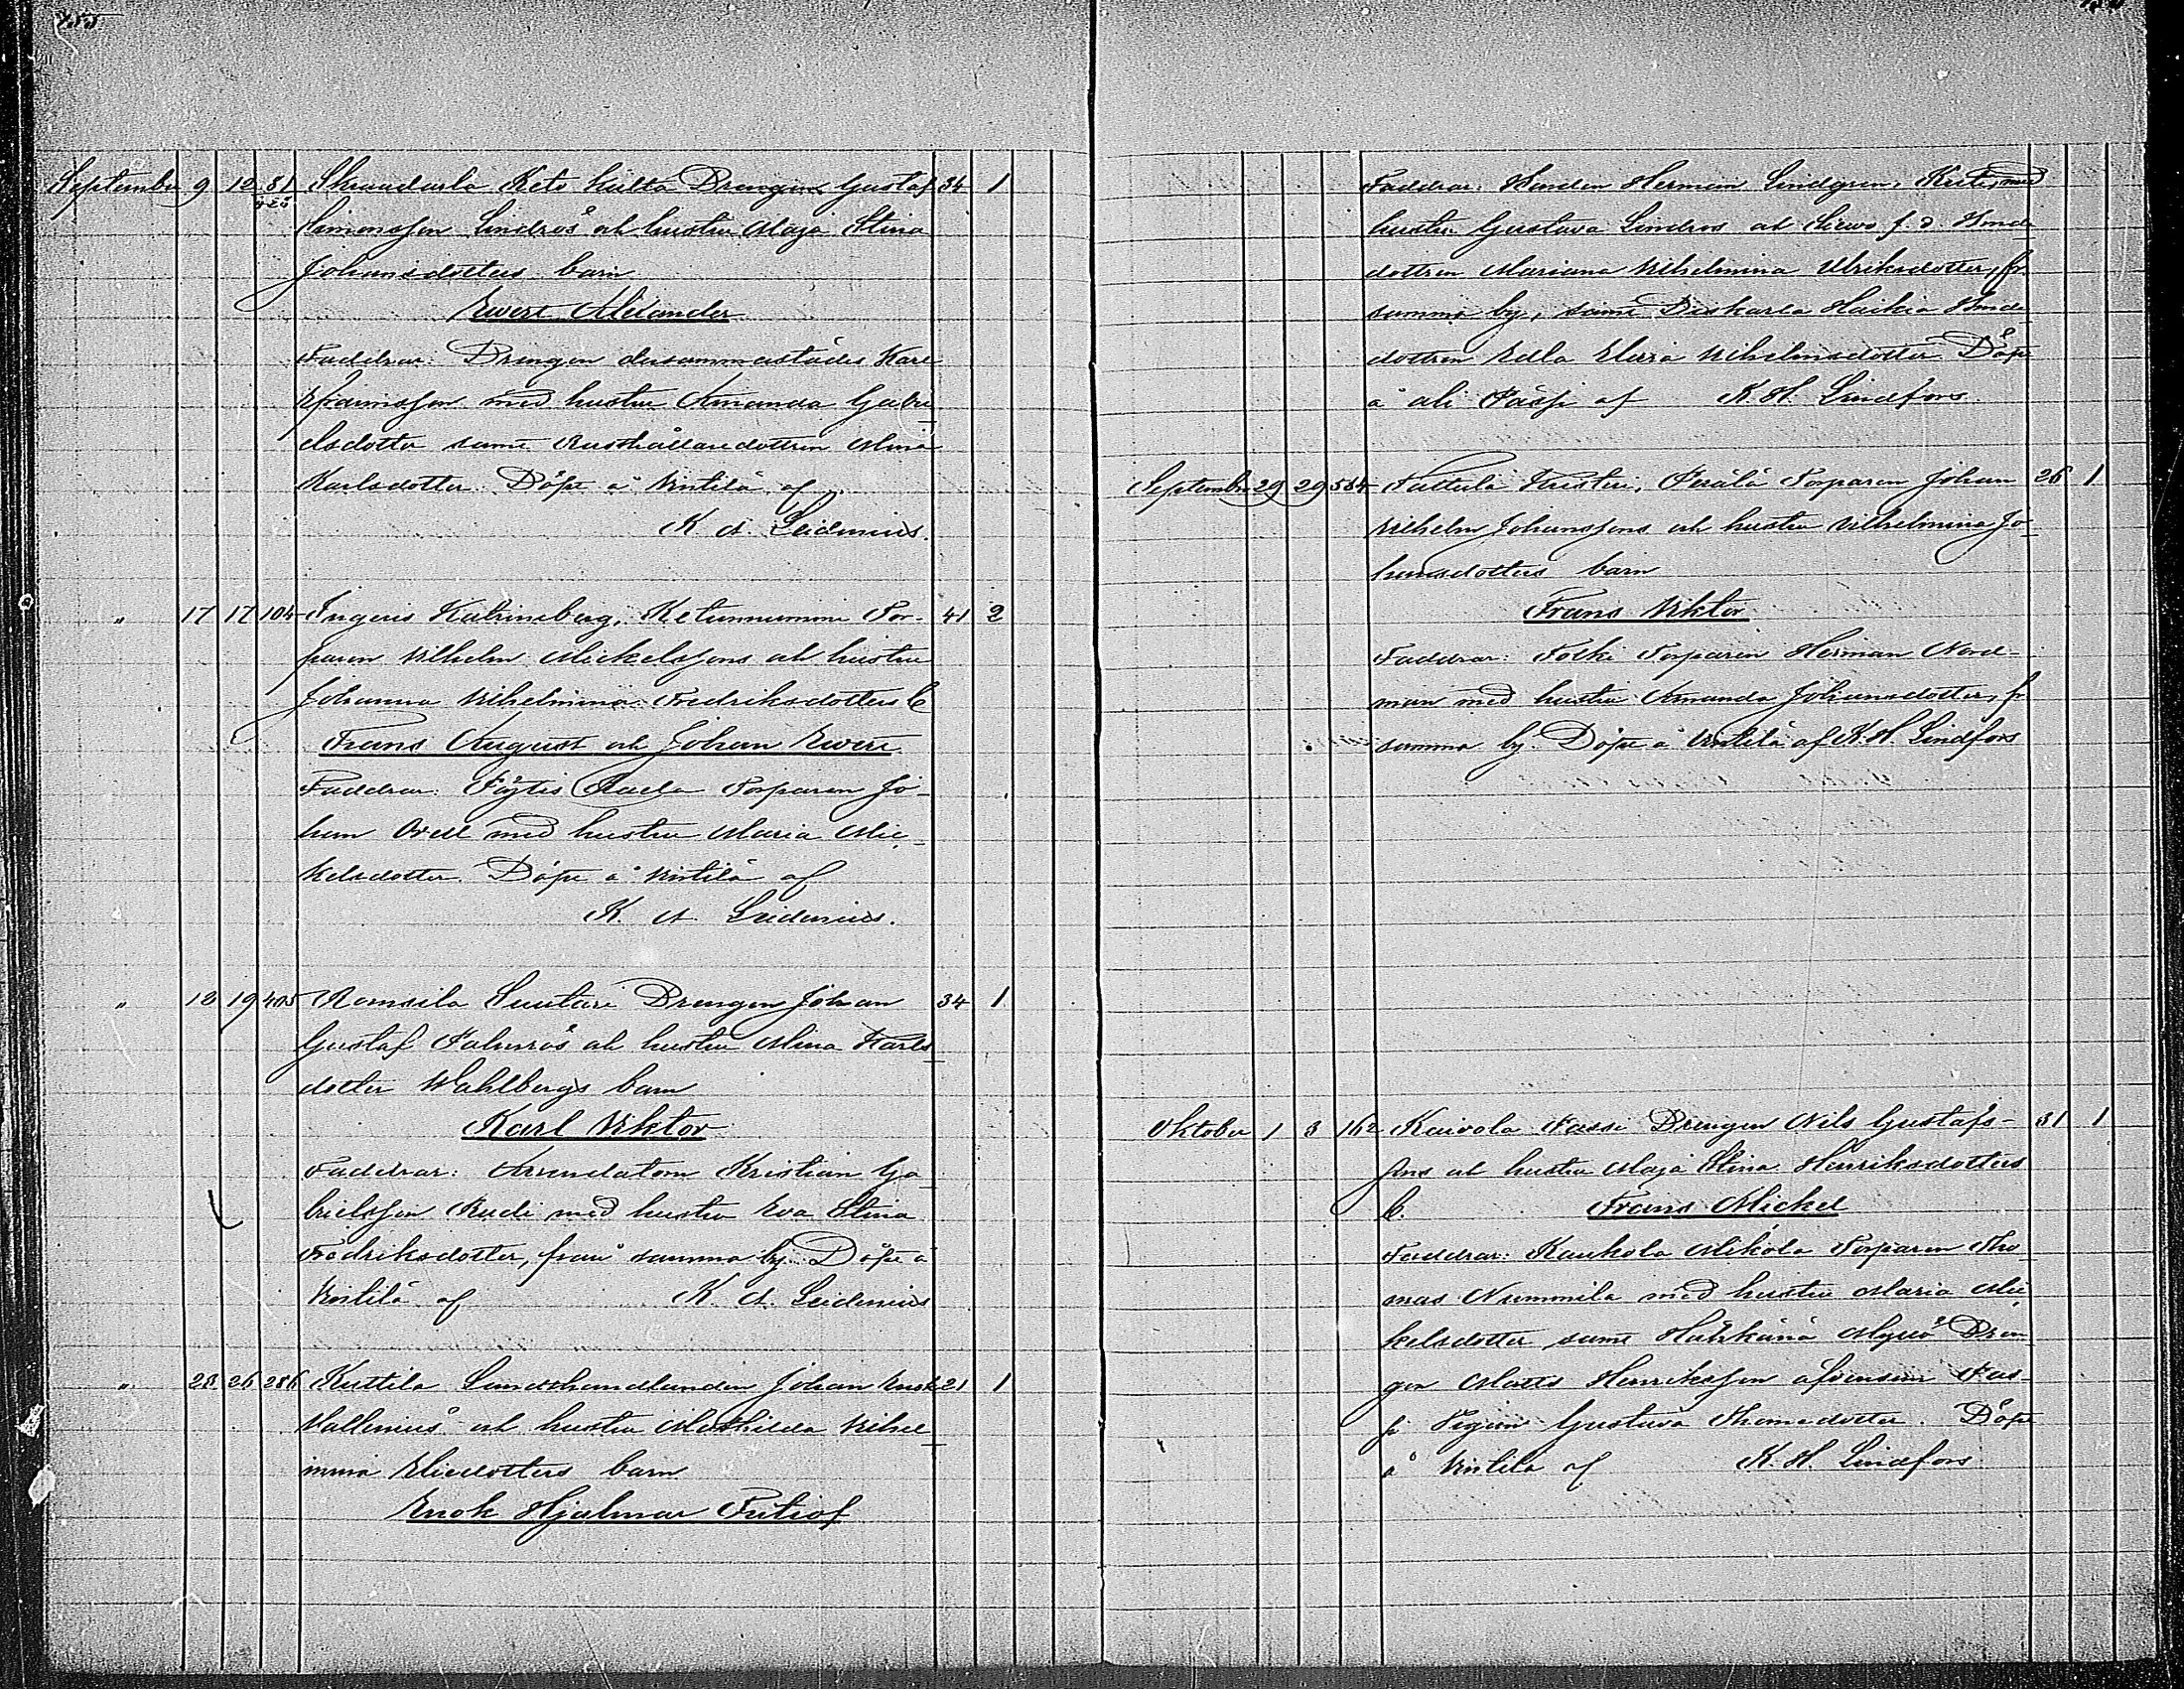 455
September 9 12 81 Skraudarla Keto kulta Drengen Gustaf 34 1
Simonsson Lindros och hustru Maja Stina
Johansdotters barn
Ewert Alexander
Faddrar: Drengen dersammastädes Karl
Efraimsson med hustru Amanda Gabri-
elsdotter samt Rusthållaredottren Mina
Karlsdotter. Döpt å Vintilä af
K. A. Leidenius.
" 17 17 104 Ingeris Katrineberg, Ketunnummi Tor- 41 2
paren Vilhelm Mickelssons och hustru
Johanna Vilhelmina Fredriksdotters b
Frans August och Johan Ewert
Faddrar: Torparen Jo-
han med hustru Maria Mic-
kelsdotter. Döpt å Vintilä af
K. A. Leidenius.
" 12 19 405 Suutari Drengen Johan 34 1
Gustaf och hustru Mina Karls-
dotter Wahlbergs barn
Karl Viktor
Faddrar: Arrendatorn Kristian Ga-
brielsson med hustru Eva Stina
Fredriksdotter, från samma by. Döpt å
Vintilä af K. A. Leidenius
" 23 26 286 Kuttila Landthandlanden Johan Enok 21 1
Vallenius och hustru Mathilda Vilhel-
mina Eliedotters barn
Enok Hjalmar Fritiof
Faddrar: Herman Lindgren, med
hustru Gustava Lindros och f. d. Bonde-
dottren Mariana Vilhelmina Ulriksdotter, fr.
samma by, samt Haikia Bonde-
dottren Edla Maria Vilhelmsdotter. Döpt
å af K. H. Lindfors
September 29 29 564 Perälä Torparen Johan 26 1
Vilhelm Johanssons och hustru Vilhelmina Jo-
hansdotters barn
Frans Viktor
Faddrar: Torparen Herman Nord-
man med hustru Amanda Johansdotter, fr
samma by. Döpt å Vintilä af K. H. Lindfors
Oktober 1 3 162 Kaivola Passi Drengen Nils Gustafs- 31 1
sons och hustru Maja Stina Henriksdotters
b. Frans Mickel
Faddrar: Kaukola Mikola Torparen Tho-
mas Nummila med hustru Maria Mic-
kelsdotter, samt Dren-
gen Matts Henriksson Pas-
si Pigan Gustava Thomedotter. Döpt
å Vintilä af K. H. Lindfors